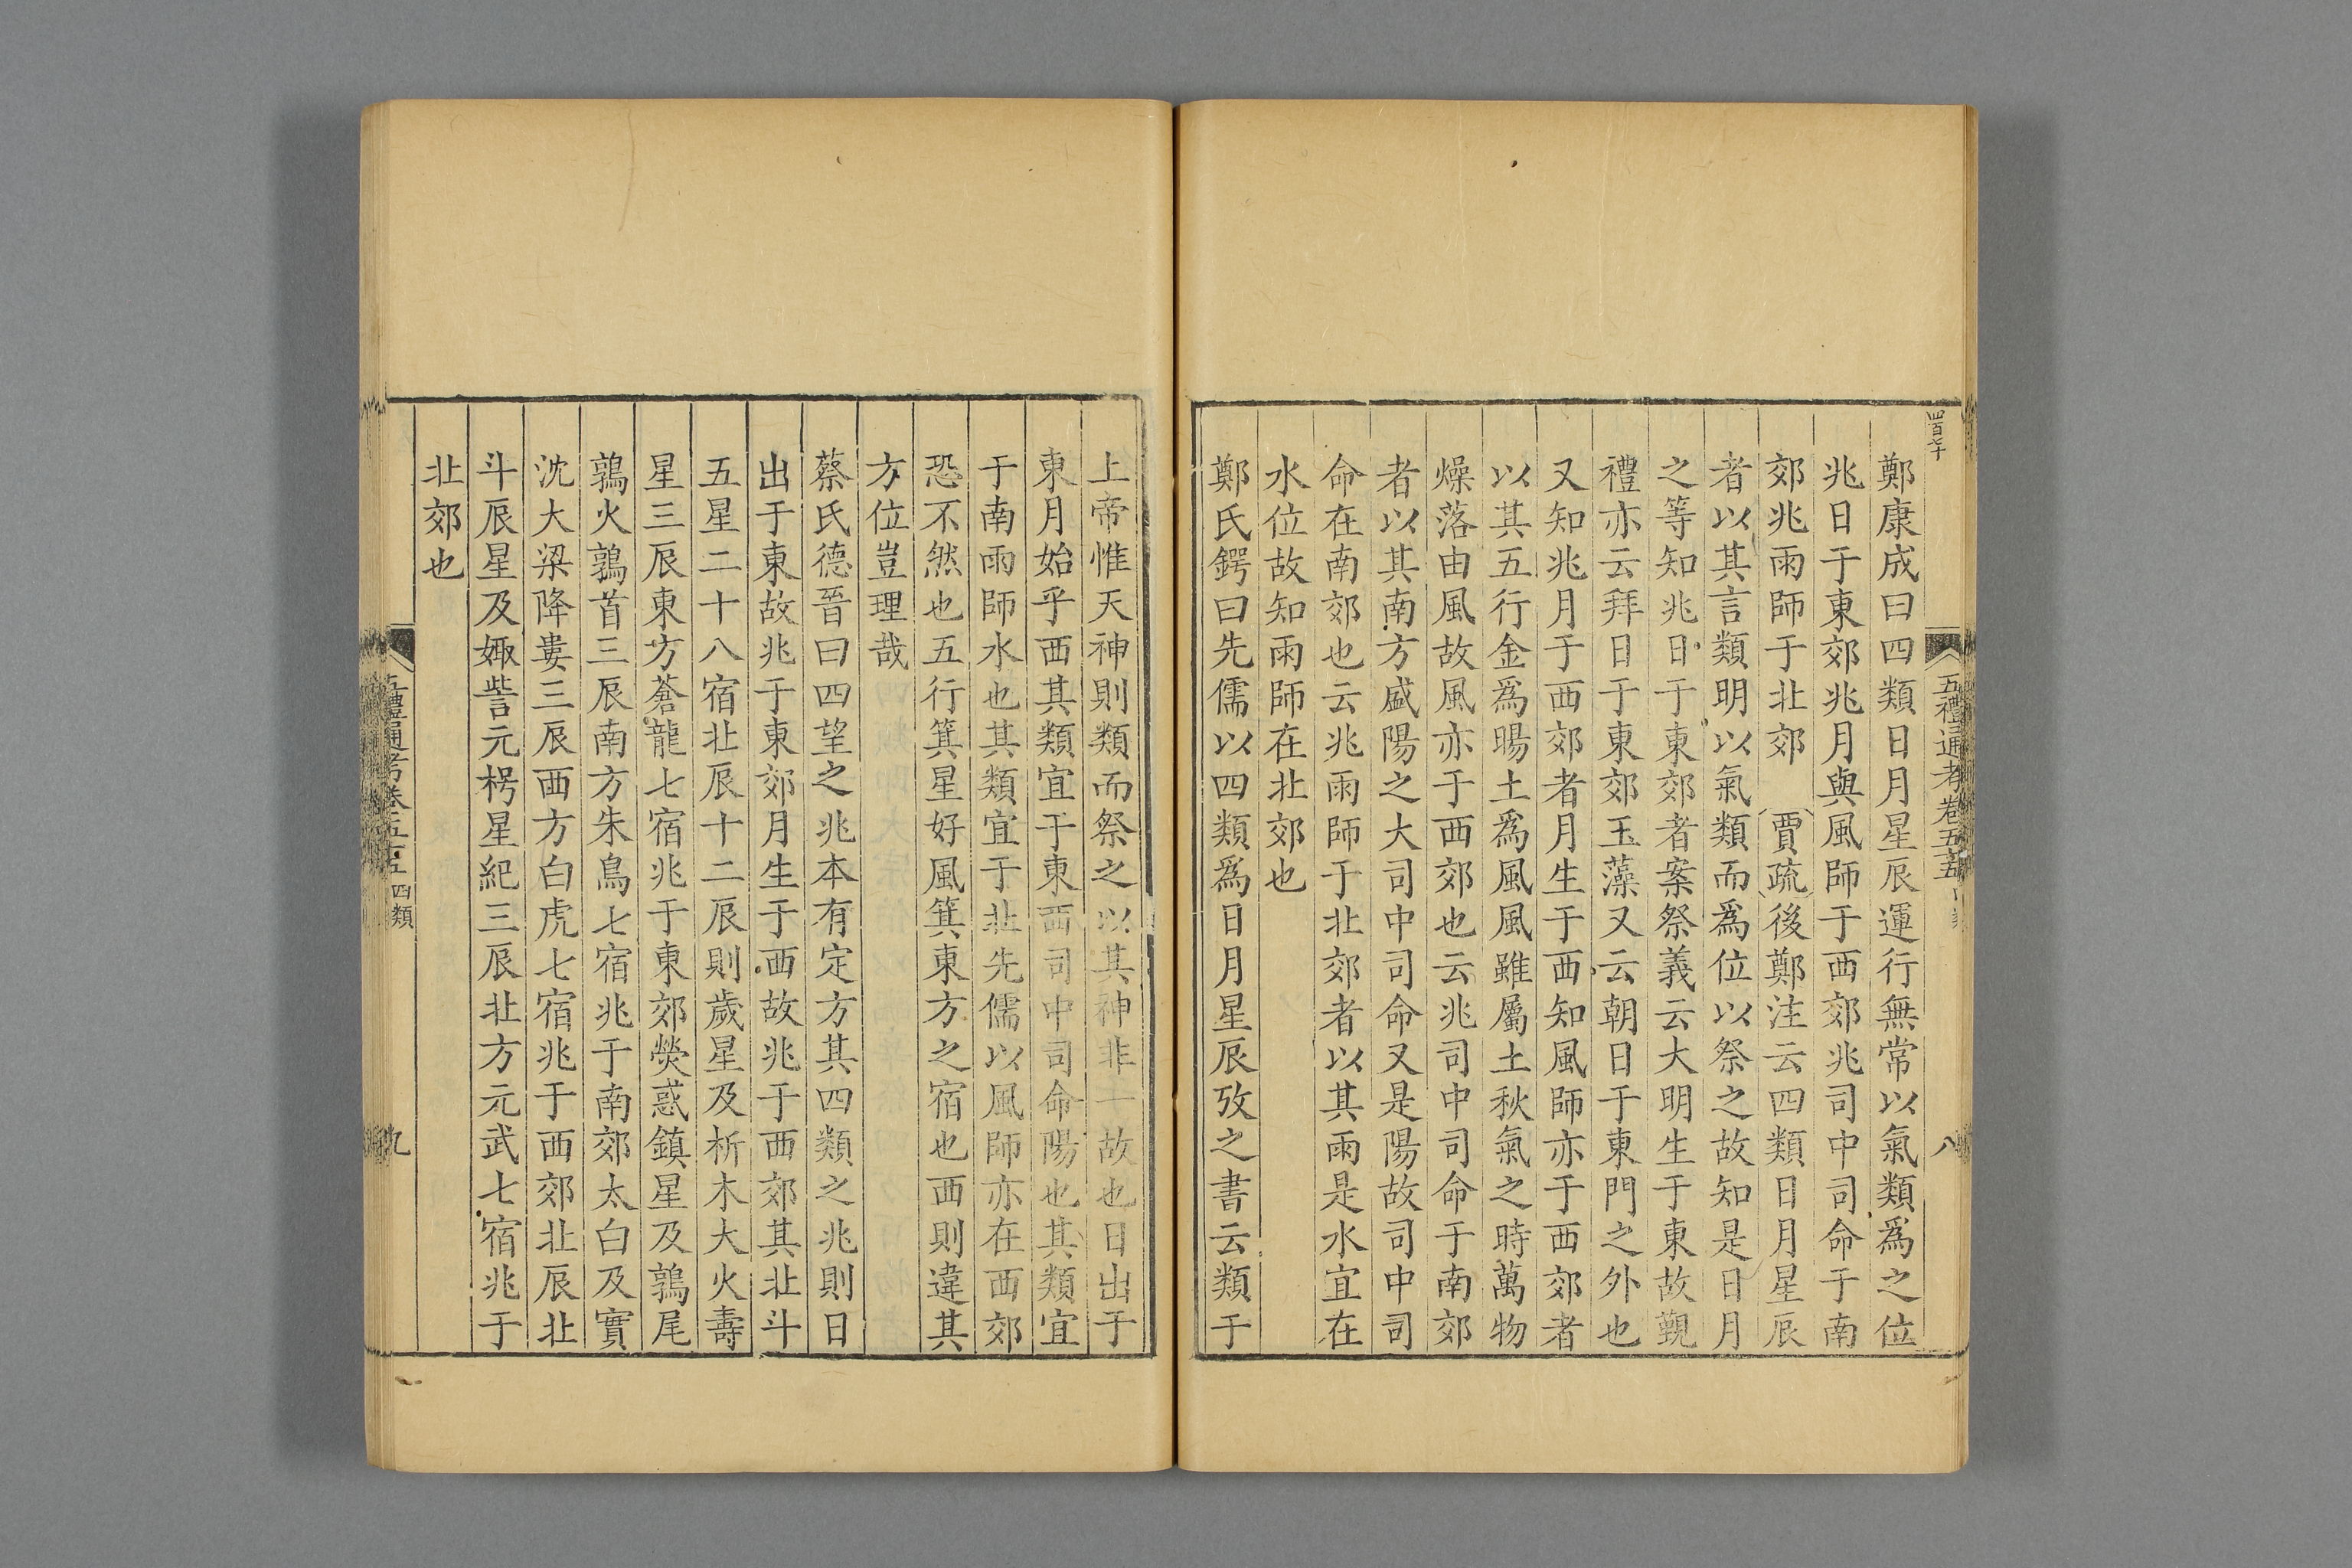 四百七十
五禮通考卷五五
八
鄭康成曰四類日月星辰運行無常以氣類爲之位
兆日于東郊兆月與風師于西郊兆司中司命于南
郊兆雨師于北郊　賈疏後鄭注云四類日月星辰
者以其言類明以氣類而爲位以祭之故知是日月
之等知兆日于東郊者案祭義云大明生于東故覲
禮亦云拜日于東郊玉藻又云朝日于東門之外也
又知兆月于西郊者月生于西知風師亦于西郊者
以其五行金爲暘土爲風風雖屬土秋氣之時萬物
燥落由風故風亦于西郊也云兆司中司命于南郊
者以其南方盛陽之大司中司命又是陽故司中司
命在南郊也云兆雨師于北郊者以其雨是水宜在
水位故知雨師在北郊也
鄭氏鍔曰先儒以四類爲日月星辰攷之書云類于
上帝惟天神則類而祭之以其神非一故也日出于
東月始乎西其類宜于東西司中司命陽也其類宜
于南雨師水也其類宜于北先儒以風師亦在西郊
恐不然也五行箕星好風箕東方之宿也西則違其
方位豈理哉
蔡氏德晉曰四望之兆本有定方其四類之兆則日
出于東故兆于東郊月生于西故兆于西郊其北斗
五星二十八宿北辰十二辰則歲星及析木大火壽
星三辰東方蒼龍七宿兆于東郊熒惑鎮星及鶉尾
鶉火鶉首三辰南方朱鳥七宿兆于南郊太白及實
沈大梁降婁三辰西方白虎七宿兆于西郊北辰北
斗辰星及娵訾元枵星紀三辰北方元武七宿兆于
北郊也
五禮通考卷五 四類
九